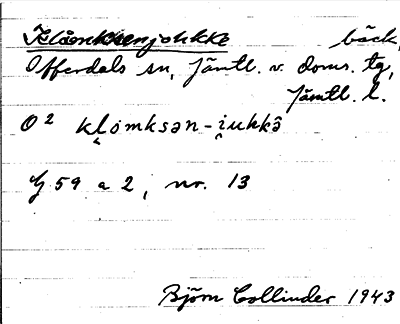 Klåmksenjohkke bäck,
Offerdals sn, Jämtl. v. doms. tg,
Jämtl. l.
O² kl̥ómksən-i̯uhkə̂
G 59 a 2, nr. 13
Björn Collinder 1943